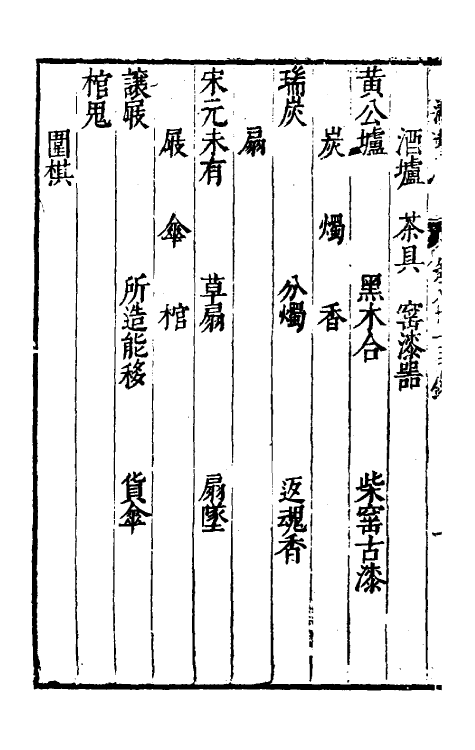 酒壚　茶具　窑漆器
黃公壚　黑木合　柴窑古漆
炭　燭　香
瑞炭　分燭　返魂香
扇
宋元未有　草扇　扇墜
屐　傘　棺
讓屐　所造能移　貨傘
棺兎
圍棋